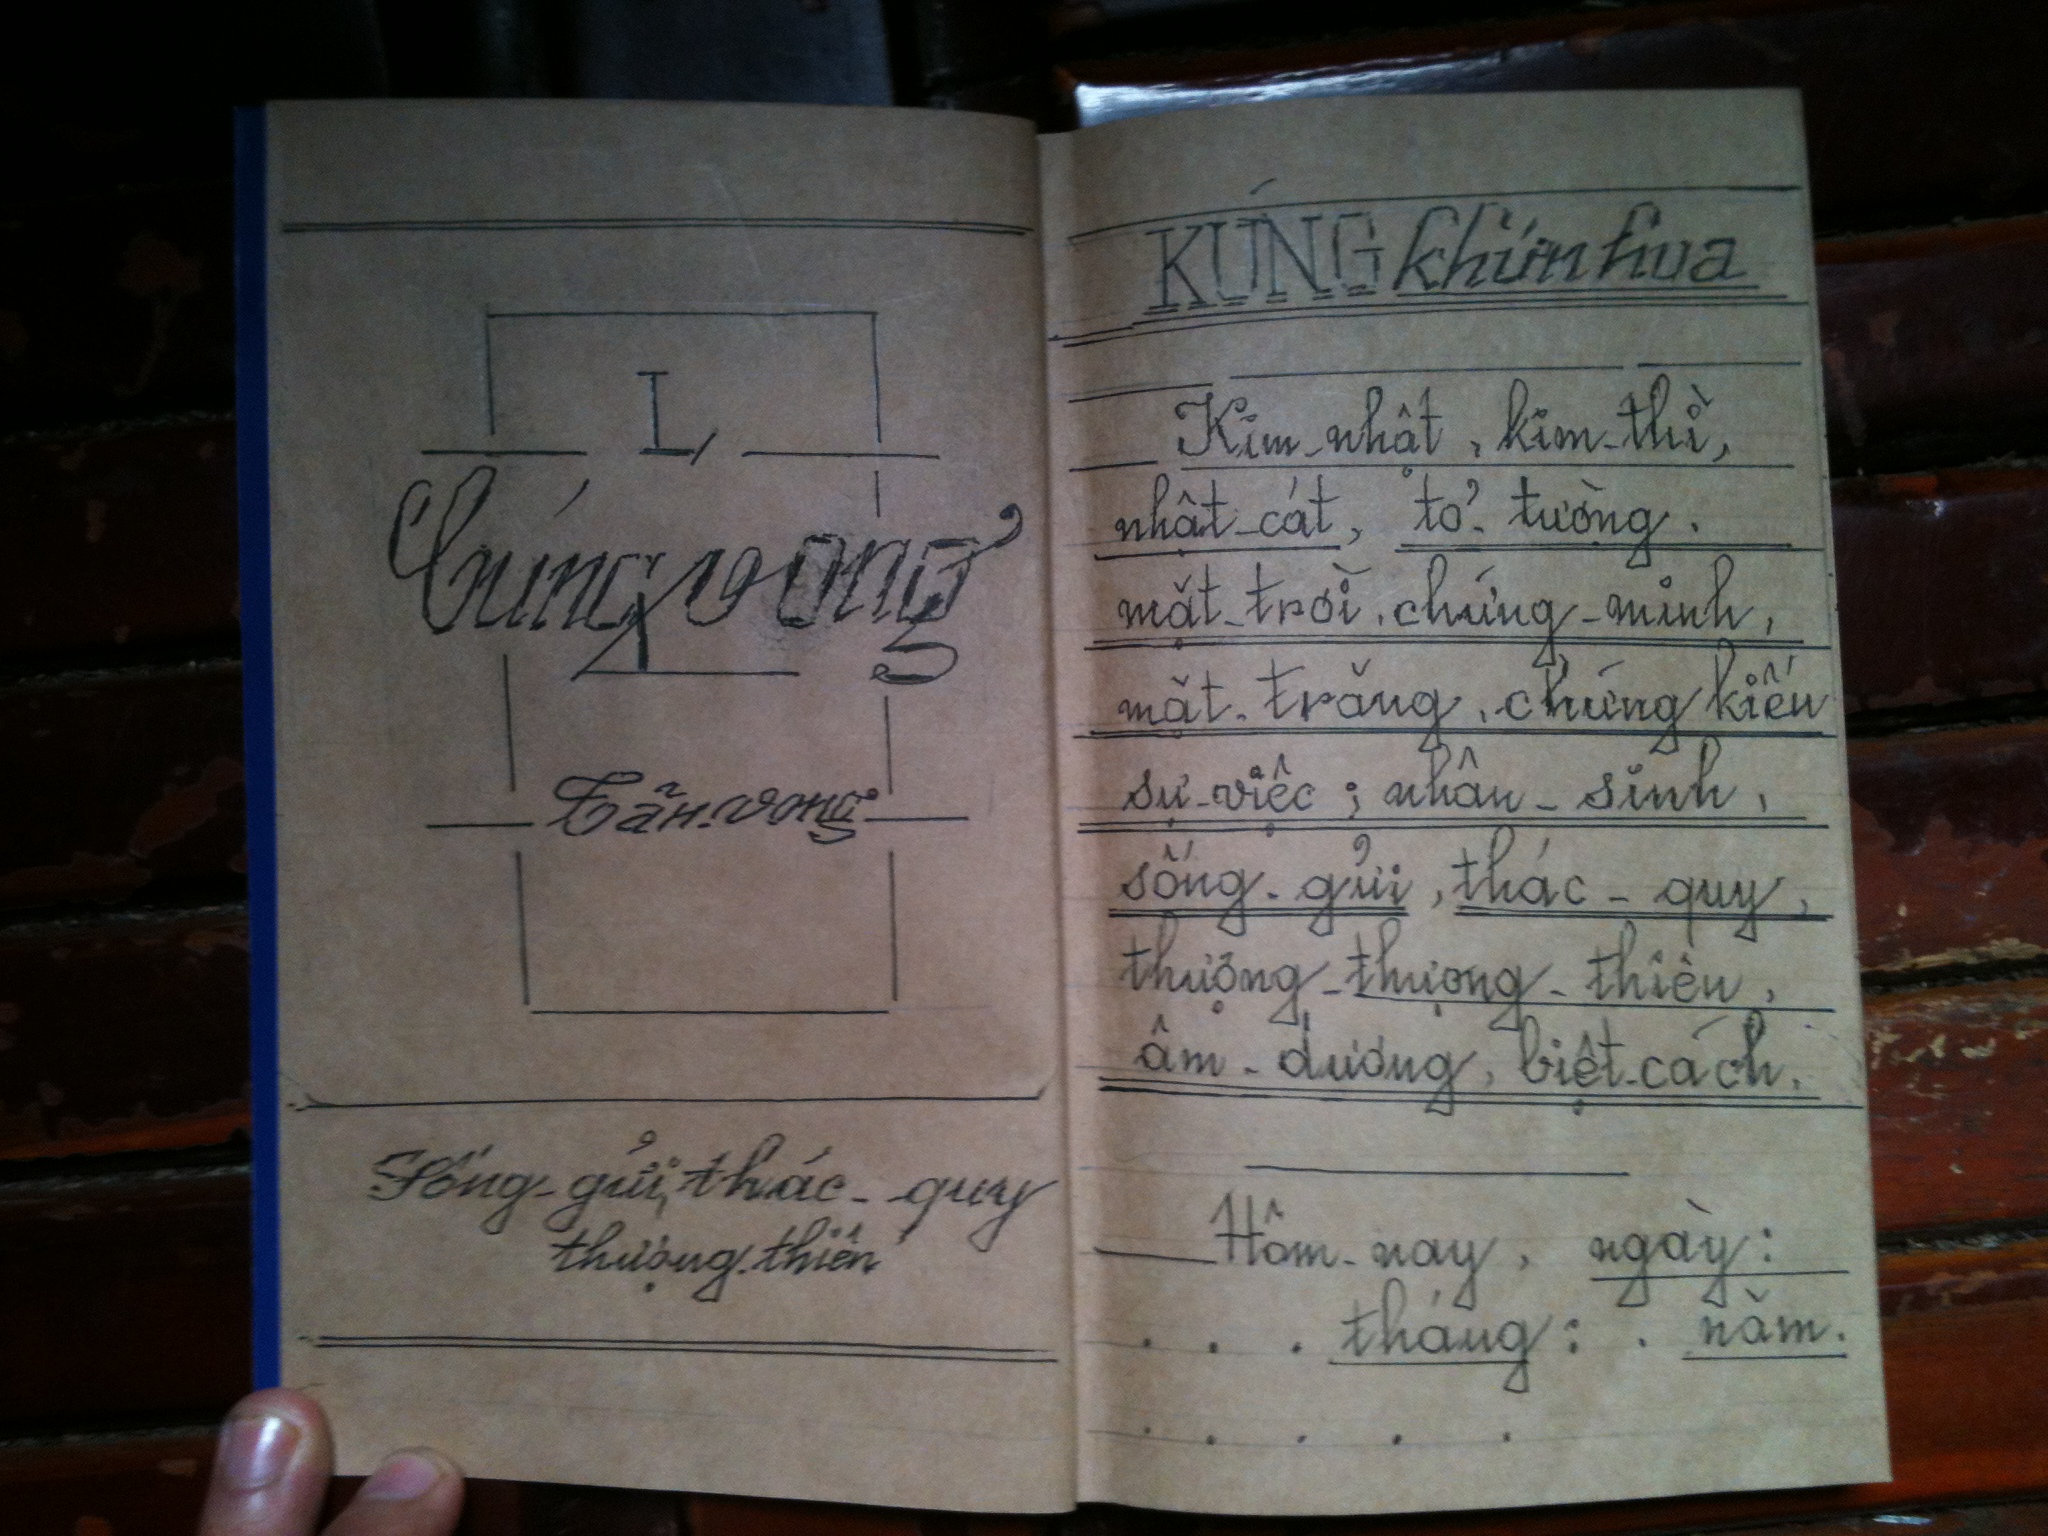 I,
Cúng vong
Tẩn-vong
Sống-gửi, thác-quy
thượng-thiên
KÚNG khửn hua
Kim-nhật, kim-thì,
nhật-cát, tỏ-tường.
mặt-trời, chứng-minh,
mặt-trăng, chứng kiến
sự-việc; nhân-sinh,
sống-gửi, thác-quy,
thượng-thượng-thiên,
âm-dương, biệt-cách.
Hôm-nay, ngày:
. . . tháng: . năm.
. . . . .